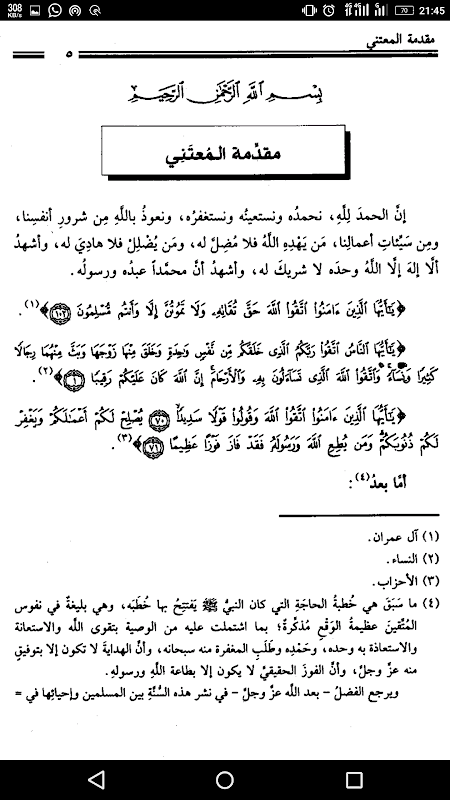 308
KB/s
70
21:45
مقدمة المعتني
٥
بِسْمِ اللَّهِ الرَّحْمَٰنِ الرَّحِيمِ
مقدِّمة المُعتَنِي
إنَّ الحمدَ لِلَّهِ، نحمدُه ونستعينُه ونستغفرُه، ونعوذُ باللَّهِ مِن شرورِ أنفسِنا،
ومِن سَيِّئاتِ أعمالِنا، مَن يَهْدِهِ اللَّهُ فلا مُضِلَّ له، ومَن يُضْلِلْ فلا هادِيَ له، وأشهدُ
ألَّا إلهَ إلَّا اللَّهُ وحدَه لا شريكَ له، وأشهدُ أنَّ محمَّداً عبدُه ورسولُه.
﴿يَٰٓأَيُّهَا ٱلَّذِينَ ءَامَنُوا۟ ٱتَّقُوا۟ ٱللَّهَ حَقَّ تُقَانِهِۦ وَلَا تَمُوتُنَّ إِلَّا وَأَنتُم مُّسْلِمُونَ ١٠٢﴾(١).
﴿يَٰٓأَيُّهَا ٱلنَّاسُ ٱتَّقُوا۟ رَبَّكُمُ ٱلَّذِى خَلَقَكُم مِّن نَّفْسٍ وَٰحِدَةٍ وَخَلَقَ مِنْهَا زَوْجَهَا وَبَثَّ مِنْهُمَا رِجَالًا
كَثِيرًا وَنِسَآءً وَٱتَّقُوا۟ ٱللَّهَ ٱلَّذِى تَسَآءَلُونَ بِهِۦ وَٱلْأَرْحَامَ إِنَّ ٱللَّهَ كَانَ عَلَيْكُمْ رَقِيبًا ١﴾(٢).
﴿يَٰٓأَيُّهَا ٱلَّذِينَ ءَامَنُوا۟ ٱتَّقُوا۟ ٱللَّهَ وَقُولُوا۟ قَوْلًا سَدِيدًا ٧٠ يُصْلِحْ لَكُمْ أَعْمَٰلَكُمْ وَيَغْفِرْ
لَكُمْ ذُنُوبَكُمْ وَمَن يُطِعِ ٱللَّهَ وَرَسُولَهُۥ فَقَدْ فَازَ فَوْزًا عَظِيمًا ٧١﴾(٣).
أمَّا بعدُ(٤):
(١) آل عمران.
(٢) النساء.
(٣) الأحزاب.
(٤) ما سَبَقَ هي خُطبةُ الحاجَةِ التي كان النبيُّ ﷺ يَفتتِحُ بها خُطَبَه، وهي بليغةٌ في نفوسِ
المُتَّقينَ عظيمةُ الوَقْعِ مُذكِّرةٌ؛ بما اشتملت عليه من الوصية بتقوى اللَّه والاستعانة
والاستعاذة به وحده، وحَمْدِه وطَلَبِ المغفرة منه سبحانه، وأنَّ الهدايةَ لا تكون إلا بتوفيقٍ
منه عزَّ وجلَّ، وأنَّ الفوزَ الحقيقيَّ لا يكون إلا بطاعة اللَّهِ ورسولِهِ.
ويرجع الفضلُ – بعد اللَّه عزَّ وجلَّ – في نشر هذه السُّنَّةِ بين المسلمين وإحيائِها في =